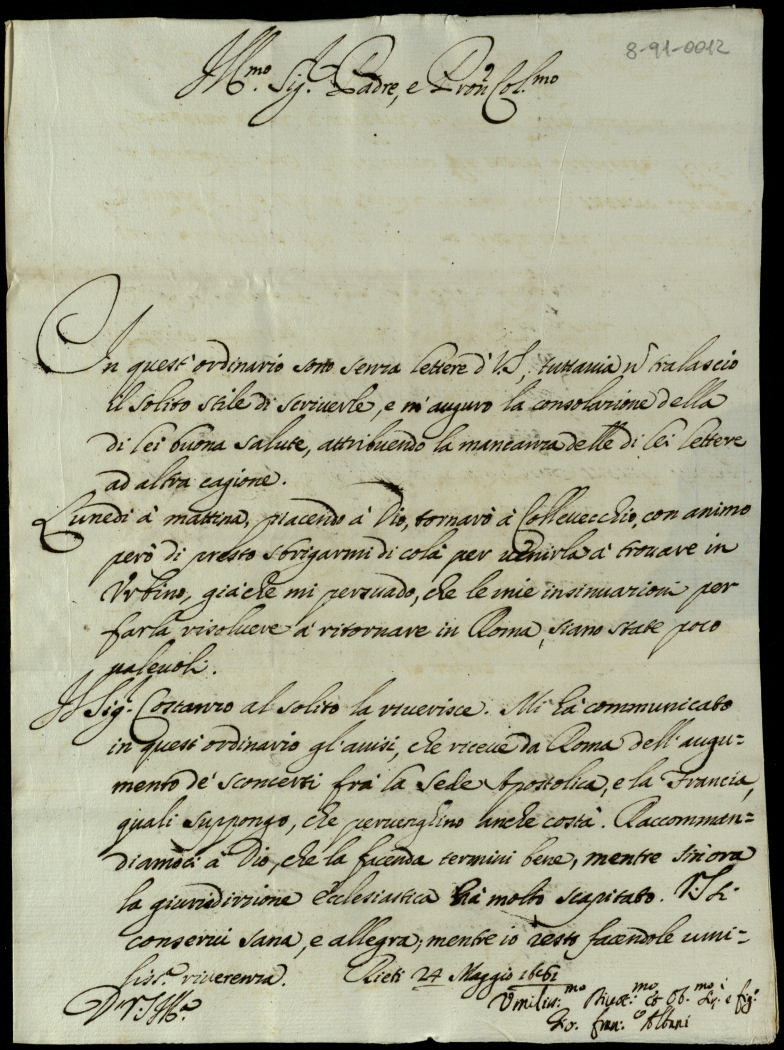 8-91-0012
Ill.mo Sig.r Padre, e Pron Col.mo
In quest'ordinario sono senza lettere d'VS, tuttavia n tralascio
il solito stile di scriverle, e m'auguro la consolazione della
di lei buona salute, attribuendo la mancanza delle di lei lettere
ad altra cagione.
Lunedi à mattina, piacendo à Dio, tornarò à Collevecchio, con animo
però di presto sbrigarmi di colà per venirla à trovare in
Urbino, già che mi persuado, che le mie insinuazioni per
farla risolvere à ritornare in Roma, siano state poco
valevoli.
Il Sig.r Costanzo al solito la riverisce. Mi hà communicato
in quest'ordinario gl'avisi, che riceve da Roma dell'augu=
mento de' sconcerti frà la Sede Apostolica, e la Francia,
quali suppongo, che pervenghino anche costà. Raccomman=
diamoci à Dio, che la facenda termini bene, mentre sin'ora
la giurisdizione ecclesiastica hà molto scapitato. V.S Ill.
conservi sana, e allegra, mentre io resto facendole umi=
liss.a riverenza. Rieti 24 Maggio
D V.S Ill.a
Umiliss.mo Divot.mo et Ob.mo s.r e fig.
Gio. Fran.co Albani